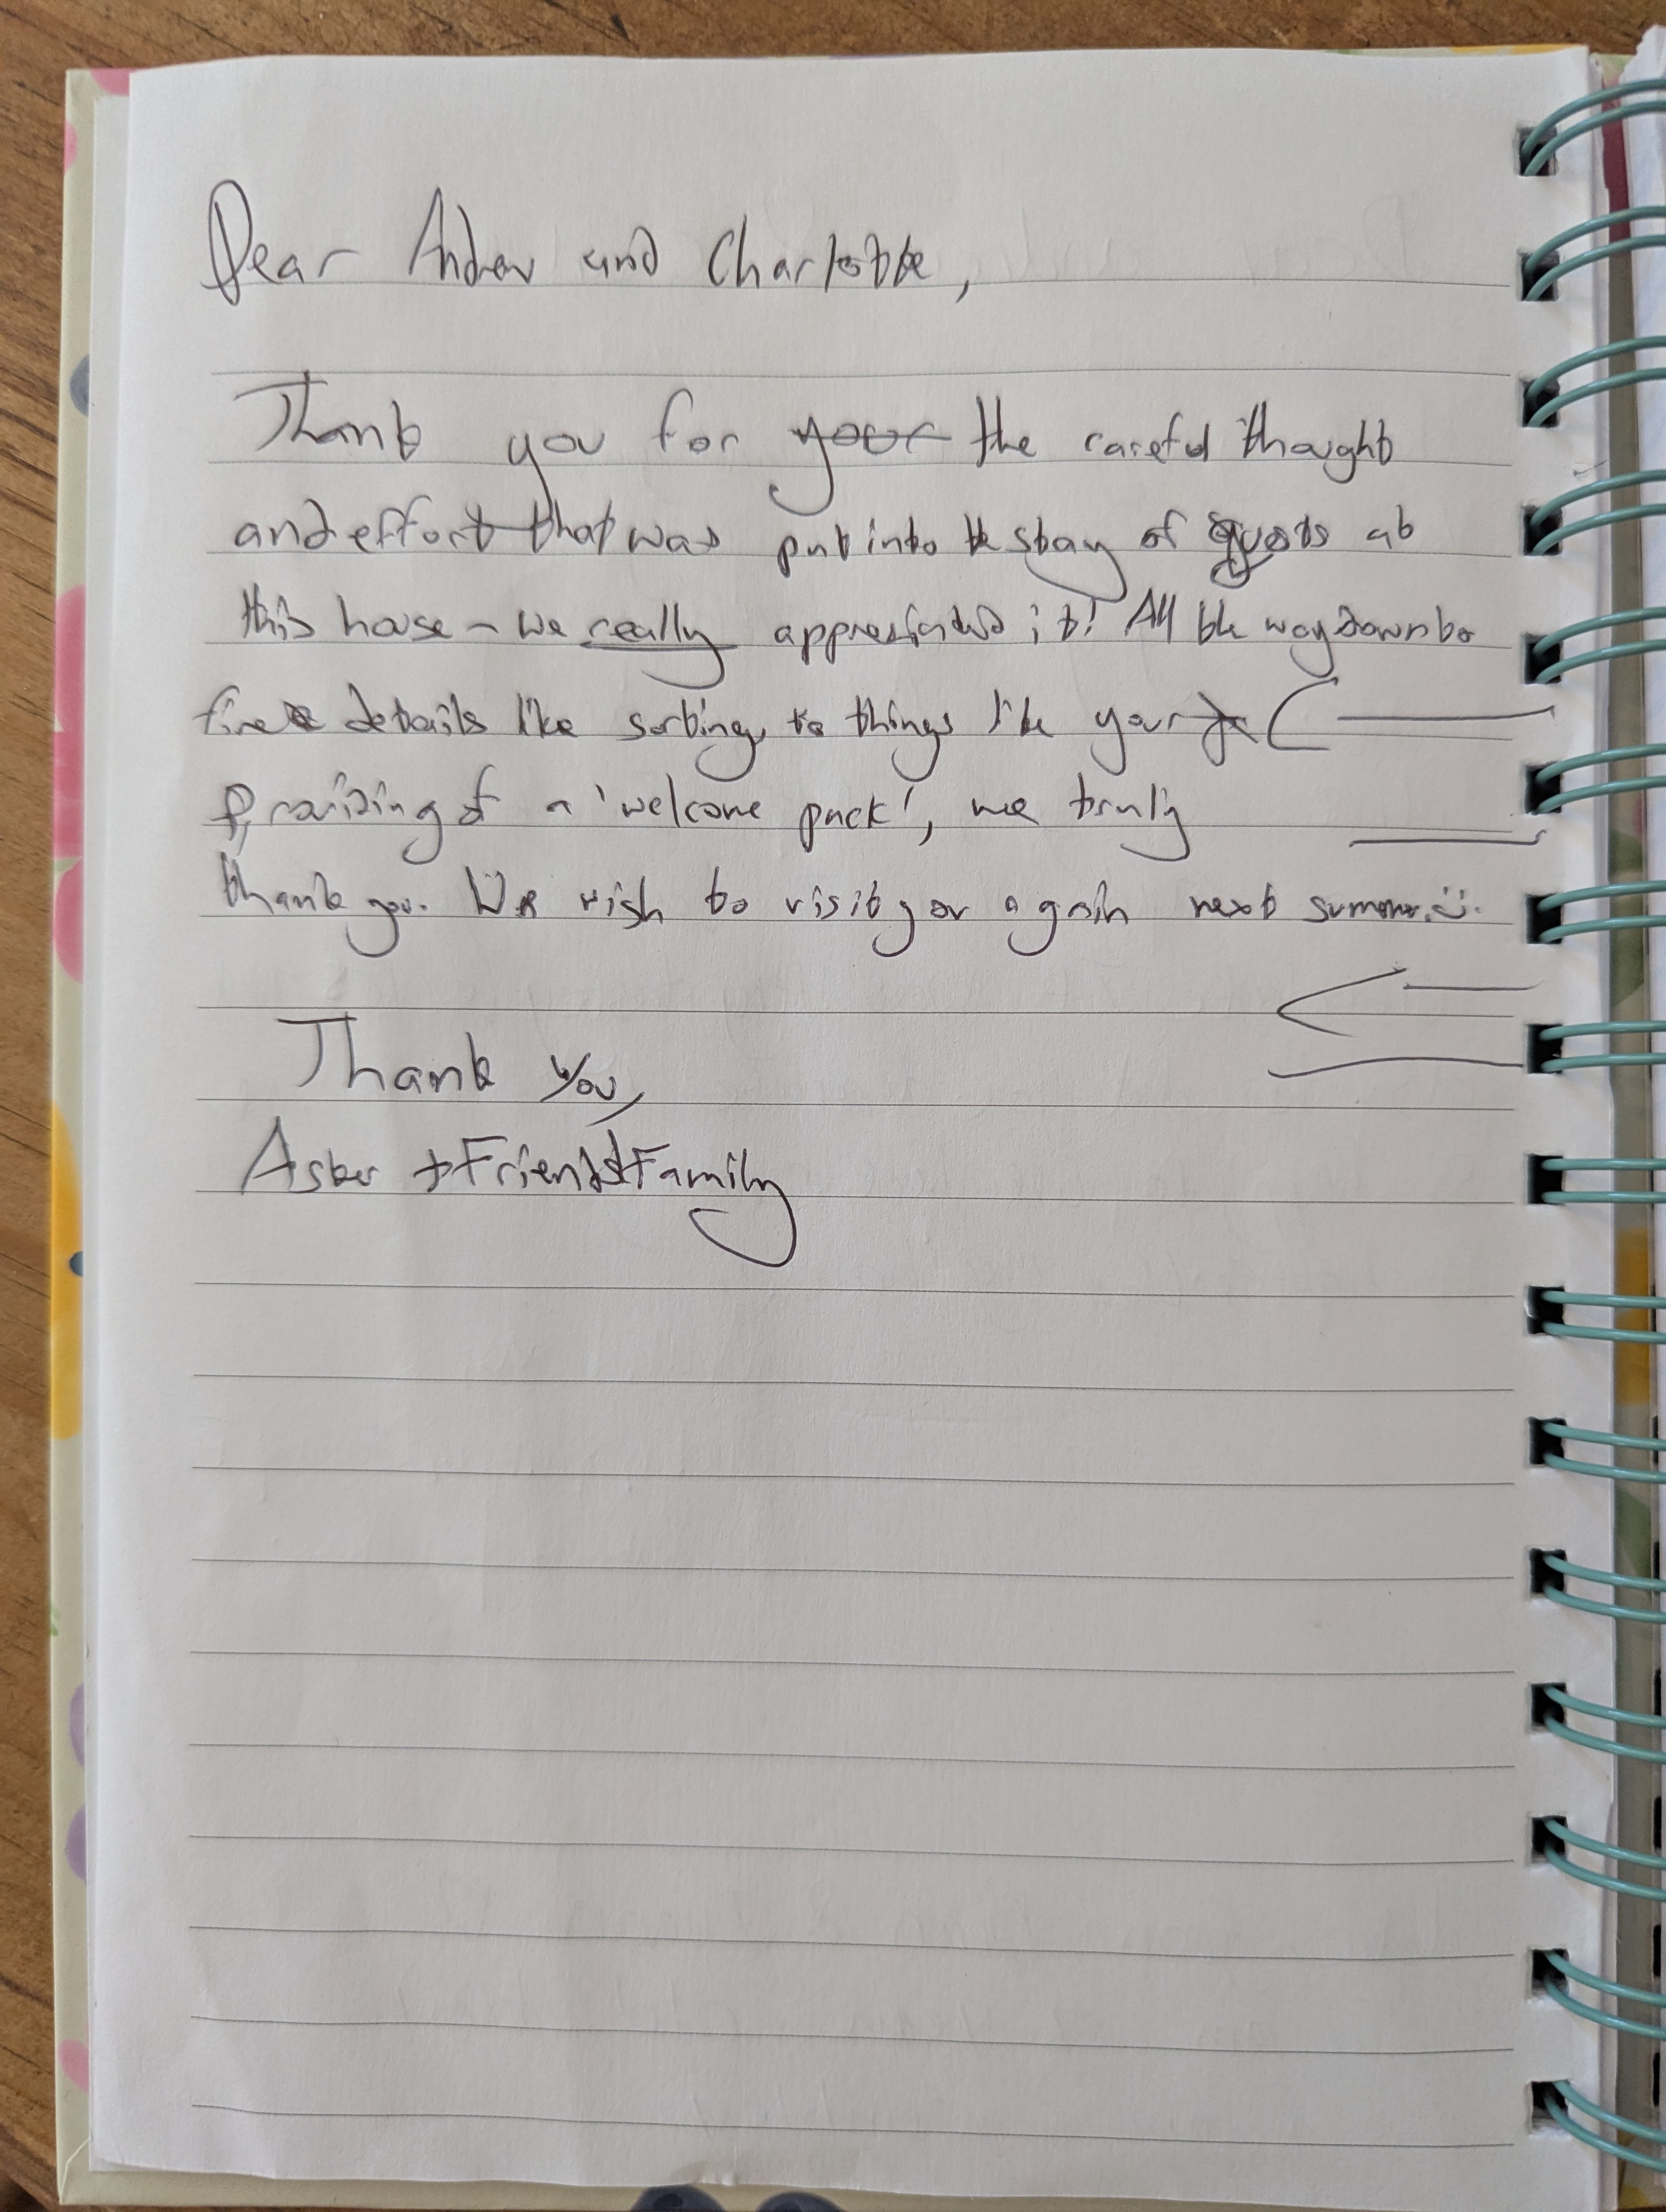 Dear Andrew and Charlotte,
Thank you for your the careful thought
and effort that was put into the stay of guests at
this house - we really appreciated it! All the way down to
fine details like sorting to things like your
providing of a 'welcome pack', we truly
thank you. We wish to visit you again next summer. :)
Thank You,
+ Friends + Family